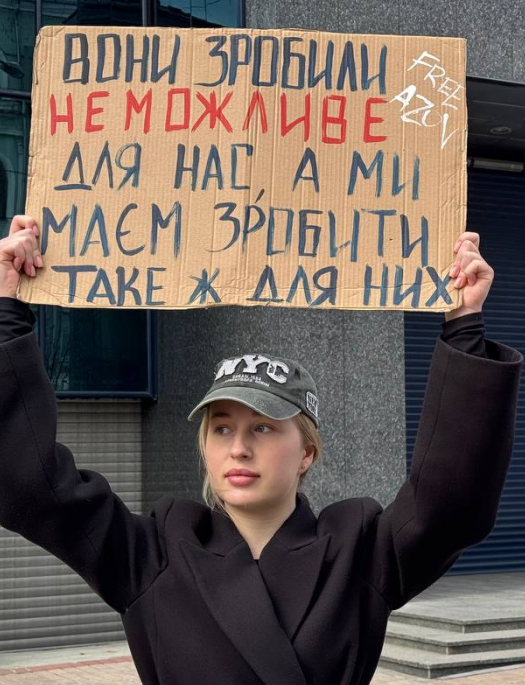 ВОНИ ЗРОБИЛИ
НЕМОЖЛИВЕ
ДЛЯ НАС, А МИ
МАЄМ ЗРОБИТИ
ТАКЕ Ж ДЛЯ НИХ
FREE
AZOV
NYC